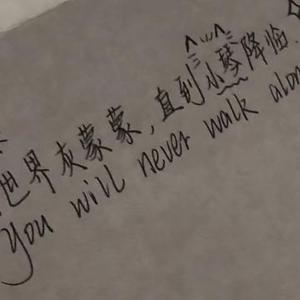 世界灰蒙蒙，直到小琴降临.
you will never walk alon